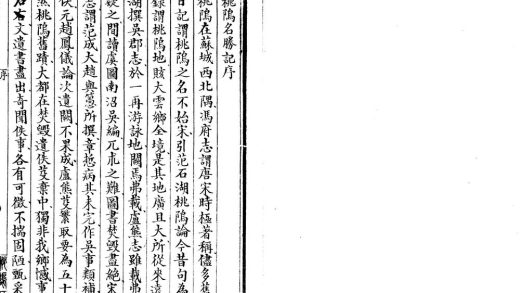 桃隖名勝記序
桃隖在蘇城西北隅馮府志謂唐宋時極著稱儘多舊
日記謂桃隖之名不始宋引范石湖桃隖論今昔句為
錄謂桃隖地賅大雲鄉全境是其地廣且大所從來遠
湖撰吳郡志於一再游詠地闕焉弗載盧熊志雖載弗
疑之間讀虞圖南沼吳編兀朮之難圖書焚毀盡絕宋
志謂范成大趙與𥲅所撰章悊病其未完作吳事類補
佚元趙鳳儀論次遺闕不果成盧熊芟繁取要為五十
然桃隖舊蹟大都在焚毀遺佚芟棄中獨非我鄉憾事
石右文遺書盡出奇聞佚事各有可徵不揣固陋甄采
序